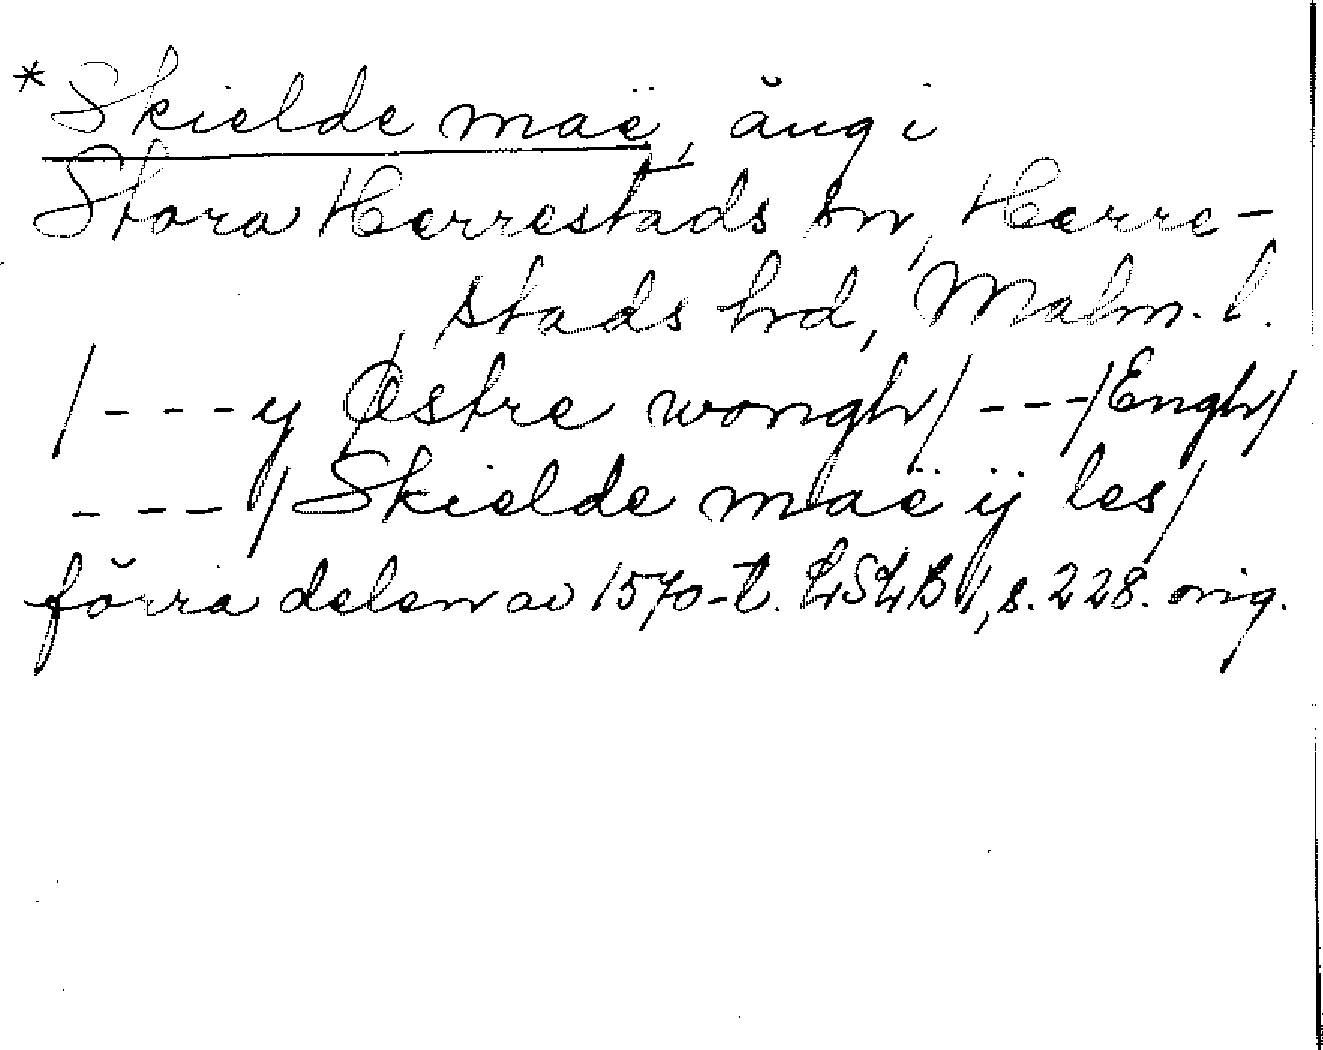 *Skielde maë, äng i
Stora Herrestads sn, Herre-
stads hrd, Malm. l.
/---y Østre wongh/ ---/Engh/
---/Skielde maë ÿ les/
förra delen av 1570-t. LSLB 1, s. 228. orig.